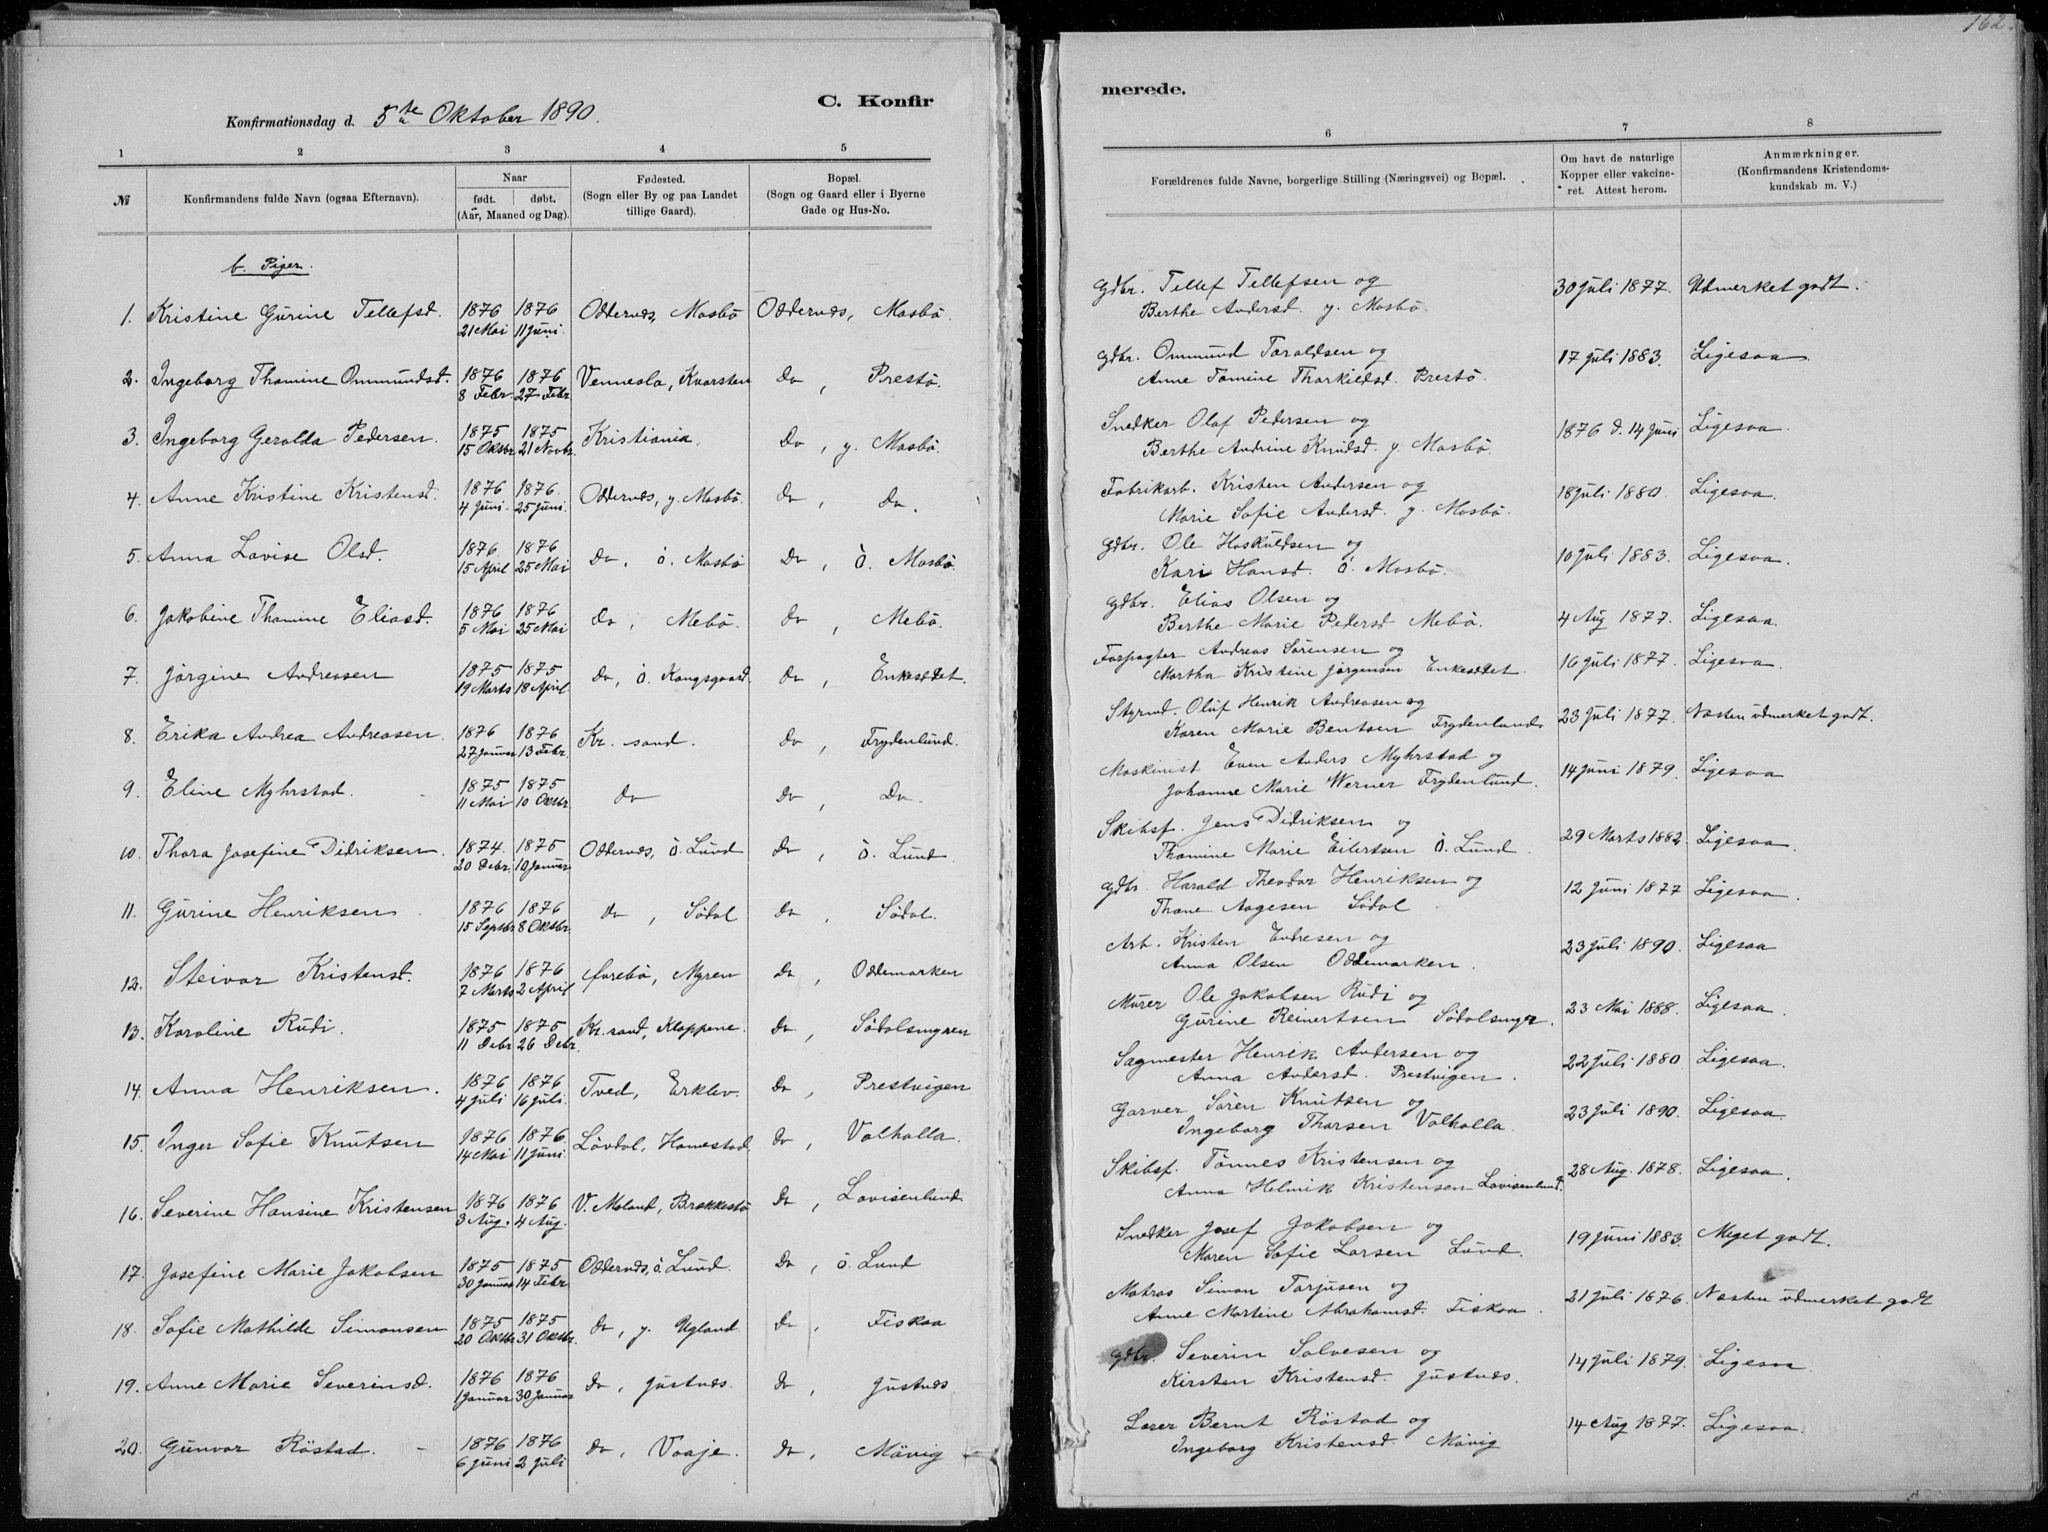 162.
C. Konfir
Konfirmationsdag d. 5te Oktober 1890.
1 2 3 4 5
№ Konfirmandens fulde Navn (ogsaa Efternavn).
Naar
født. døbt.
(Aar, Maaned og Dag).
Fødested.
(Sogn eller By og paa Landet
tillige Gaard).
Bopæl.
(Sogn og Gaard eller i Byerne
Gade og Hus-No.
b. Piger.
1. Kristine Gurine Tellefsd. 1876 1876 Oddernæs, Mosbö Oddernæs, Mosbö.
21 Mai 11 Juni.
2. Ingeborg Thomine Ommundsd. 1876 1876 Vennesla, Kvarsten Do, Prestö.
8 Febr. 27 Febr.
3. Ingeborg Geralda Pedersen. 1875 1875 Kristiania. Do, y. Mosbö.
15 Oktbr. 21 Novbr.
4. Anne Kristine Kristensd. 1876 1876. Oddernæs, y. Mosbö. Do, Do.
4 Juni. 25 Juni.
5. Anna Lovise Olsd. 1876. 1876 Do, ö. Mosbö Do, ö. Mosbö.
15 April 25 Mai
6. Jakobine Thomine Eliasd. 1876 1876 Do, Mebö. Do, Mebö.
5 Mai 25 Mai
7. Jörgine Andreasen 1875 1875 Do, ö. Kongsgaard. Do, Enkesædet.
19 Marts 18 April.
8. Erika Andrea Andreasen. 1876 1876 Kr. sand. Do, Frydenlund.
27 Januar 13 Febr.
9. Eline Myhrstad. 1875 1875 Do Do, Do.
11 Mai 10 Oktbr.
10. Thora Josefine Didriksen. 1874. 1875 Oddernæs, ö. Lund Do, ö. Lund.
20 Debr. 10 Januar
11. Gurine Henriksen 1876 1876 Do, Södal Do, Södal.
15 Septbr. 8 Oktbr.
12. Steivor Kristensd. 1876 1876 Örebö, Myren Do, Oddemarken
7 Marts 2 April
13. Karoline Rudi. 1875 1875 Kr. sand, Kloppene. Do, Södalsmyren
11 Debr. 26 Debr.
14. Anna Henriksen. 1876 1876 Tved, Erklev. Do, Prestvigen
4 Juli 16 Juli.
15. Inger Sofie Knutsen 1876 1876. Lövdal, Homestad. Do, Valhalla.
14 Mai 11 Juni.
16. Severine Hansine Kristensen 1876 1876 V. Moland, Brækkestö Do, Lovisenlund
3 Aug. 4 Aug.
17. Josefine Marie Jakobsen 1875 1875 Oddernæs, ö. Lund. Do, ö. Lund
30 Januar 14 Febr.
18. Sofie Mathilde Simonsen 1875 1875 Do, y. Ugland. Do, Fiskaa
20 Oktbr. 31 Oktbr.
19. Anne Marie Severinsd. 1876 1876 Do, Justnæs. Do, Justnæs
1 Januar 30 Januar
20. Gunvor Röstad. 1876 1876 Do, Vaaje. Do, Mövig
6 Juni 2 Juli
merede.
6 7 8
Forældrenes fulde Navne, borgerlige Stilling (Næringsvei) og Bopæl.
Om havt de naturlige
Kopper eller vakcine-
ret. Attest herom.
Anmærkninger.
(Konfirmandens Kristendoms-
kundskab m. V.)
Gdbr. Tellef Tellefsen og 30 Juli 1877. Udmerket godt.
Berthe Andersd. y. Mosbö.
Gdbr. Ommund Taraldsen og 17 Juli 1883. Ligesaa.
Anne Tomine Thorkildsd. Prestö.
Snedker Olaf Pedersen og 1876 d. 14 Juni Ligesaa.
Berthe Andrine Knudsd. y. Mosbö.
Fabrikarb. Kristen Andersen og 18 Juli 1880. Ligesaa.
Marie Sofie Andersd. y. Mosbö.
Gdbr. Ole Hoskuldsen og 10 Juli 1883. Ligesaa.
Kari Hansd. ö. Mosbö.
Gdbr. Elias Olsen og 4 Aug 1877. Ligesaa.
Berthe Marie Pedersd Mebö.
Forpagter Andreas Sörensen og 16 Juli 1877. Ligesaa.
Martha Kristine Jörgensen Enkesædet.
Styrmd. Oluf Henrik Andreasen og 23 Juli 1877. Næsten udmerket godt.
Karen Marie Bentsen Frydenlund
Maskinist Even Anders Myhrstad og 14 Juni 1879. Ligesaa
Johanne Marie Werner Frydenlund.
Skibsf. Jens Didriksen og 29 Marts 1882. Ligesaa.
Thomine Marie Eilertsen ö. Lund.
Gdbr. Harald Theodor Henriksen og 12 Juni 1877 Ligesaa.
Thone Aagesen Södal.
Arb. Kristen Endresen og 23 Juli 1890. Ligesaa
Anna Olsen Oddemarken.
Murer Ole Jakobsen Rudi og 23 Mai 1888. Ligesaa.
Gurine Reinertsen Södalsmyr.
Sagmester Henrik Andersen og 22 Juli 1880. Ligesaa.
Anna Andersd. Prestvigen.
Garver Sören Knutsen og 23 Juli 1890. Ligesaa.
Ingeborg Thorsen Valhalla.
Skibsf. Tönnes Kristensen og 28 Aug. 1878. Ligesaa.
Anna Helmik Kristensen Lovisenlund.
Snedker Josef Jakobsen og 19 Juni 1883. Meget godt.
Maren Sofie Larsen Lund.
Matros Simon Torjusen og 21 Juli 1876. Næsten udmerket godt
Anne Martine Abrahamsd. Fiskaa.
Gdbr. Severin Salvesen og 14 Juli 1879. Ligesaa
Kirsten Kristensd. Justnæs.
Lærer Bernt Röstad og 14 Aug 1877. Ligesaa.
Ingeborg Kristensd. Mövig